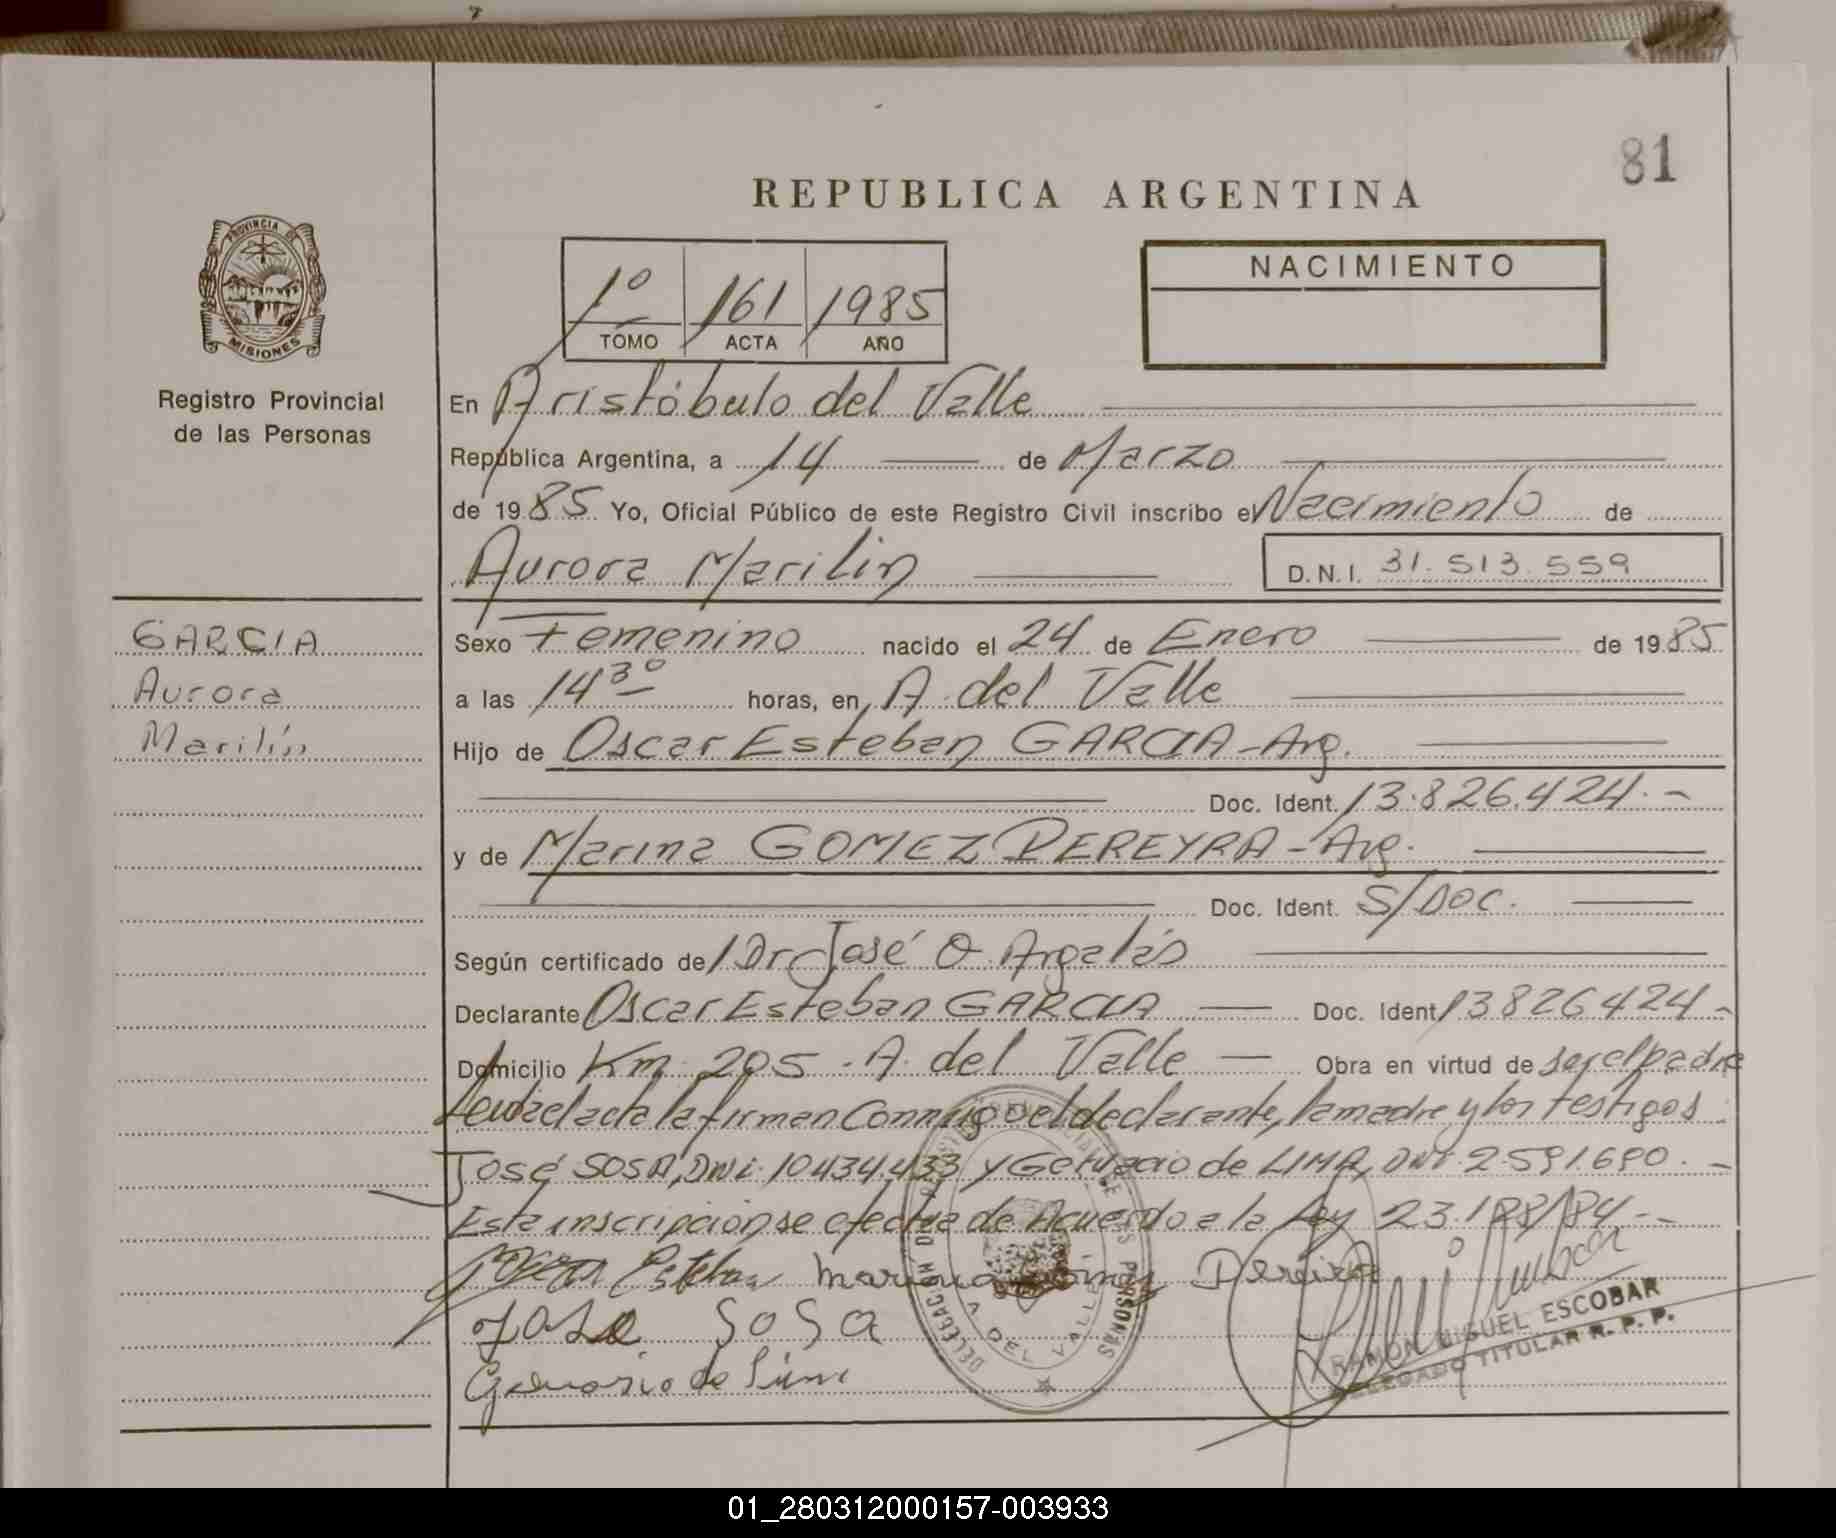 81
REPUBLICA ARGENTINA
PROVINCIA DE
MISIONES
Registro Provincial
de las Personas
1º 161 1985
TOMO ACTA AÑO
NACIMIENTO
En Aristóbulo del Valle
República Argentina, a 14 de Marzo
de 1985 Yo, Oficial Público de este Registro Civil inscribo el Nacimiento de
Aurora Marilin D.N.I. 31.513.559
GARCIA
Aurora
Marilín
Sexo Femenino nacido el 24 de Enero de 1985
a las 14 30 horas, en A. del Valle
Hijo de Oscar Esteban GARCIA - Arg.
Doc. Ident. 13.826.424.-
y de Marina GOMEZ PEREYRA - Arg.
Doc. Ident. S/Doc.
Según certificado de Dr José O. Argalás
Declarante Oscar Esteban GARCIA Doc. Ident 13826424-
Domicilio Km. 205 - A. del Valle Obra en virtud de ser el padre
Leída el acta la firman Conmigo el declarante, la madre y los testigos
José SOSA, DNI. 10434.433 y Gervacio de LIMA, DNI 2.591.690.-
Esta inscripción se efectúa de Acuerdo a la Ley 23.128/84.-
Esteban Pereira
Jose Sosa
Gervasio de Lima
DELEGACION A DEL VALLE
PERSONAS
RAMON MIGUEL ESCOBAR
DELEGADO TITULAR R. P. P.
01_280312000157-003933